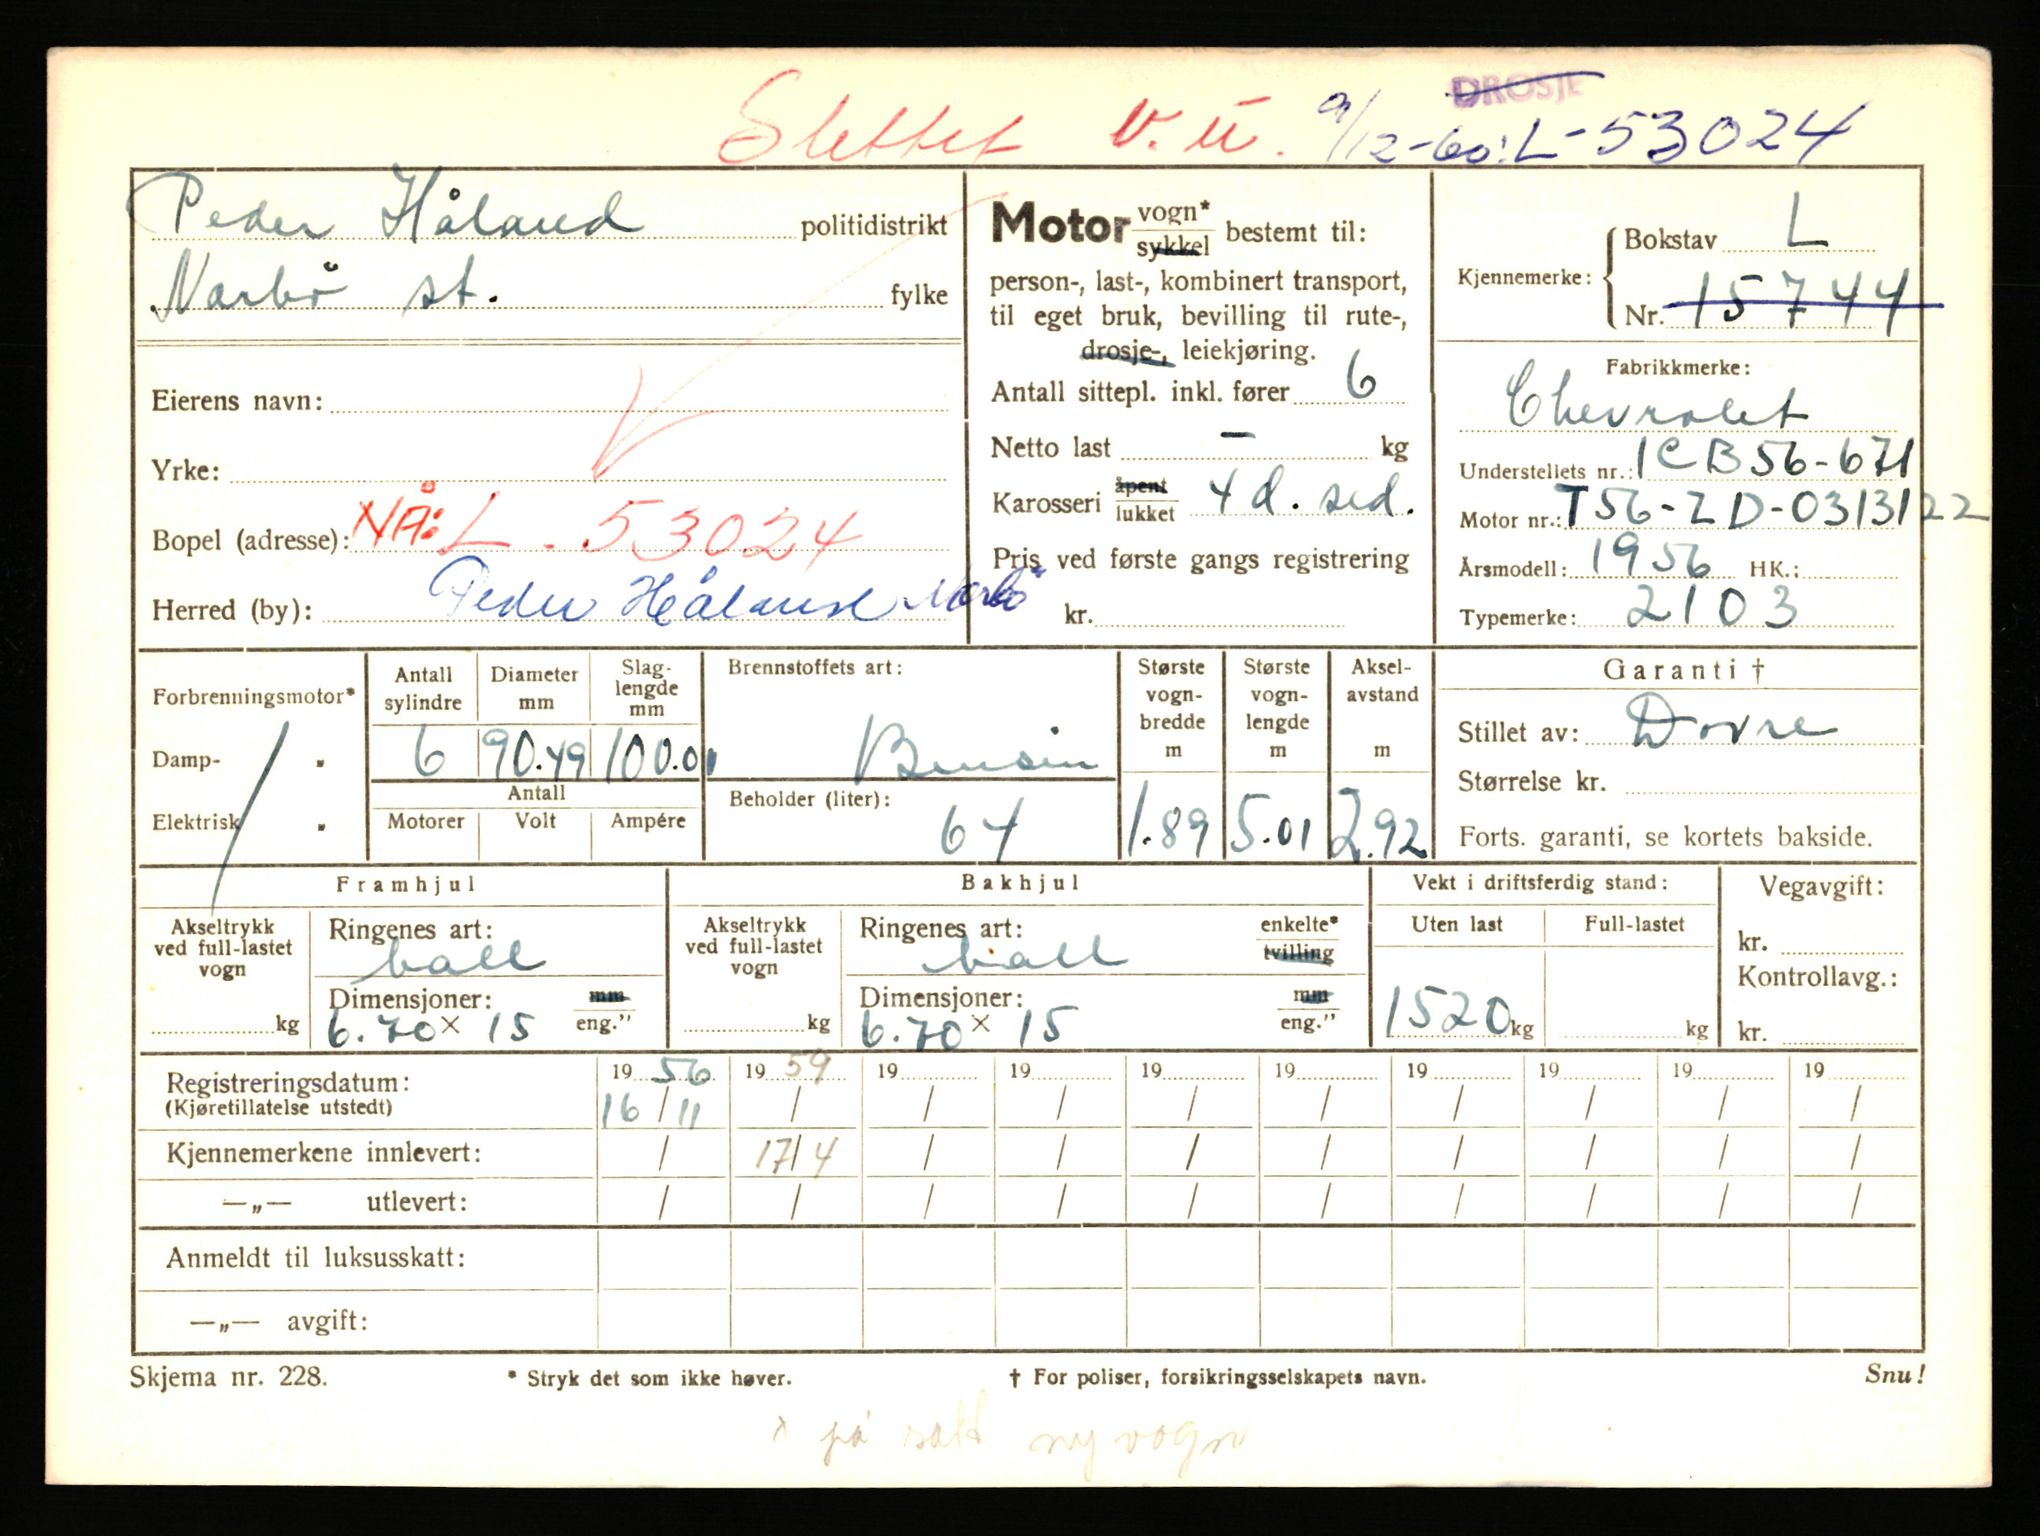 DROSJE
Slettet V. U. 9/12-60: L-53024
Peder Håland politidistrikt
Narbø st. fylke
Eierens navn:
Yrke:
Bopel (adresse): NÅ: L. 53024
Herred (by): Peder Håland Narbø
Motor vogn* sykkel bestemt til:
person-, last-, kombinert transport,
til eget bruk, bevilling til rute-,
drosje-, leiekjøring.
Antall sittepl. inkl. fører 6
Netto last – kg
Karosseri åpent lukket 4 d. sed.
Pris ved første gangs registrering
kr.
Kjennemerke: { Bokstav L
Nr. 15744
Fabrikkmerke:
Chevrolet
Understellets nr.: 1CB56-671
Motor nr.: T56-ZD-0313122
Årsmodell: 1956 HK.:
Typemerke: 2103
Forbrenningsmotor*
Damp- "
Elektrisk "
Antall sylindre
6
Diameter mm
90.49
Slag-lengde mm
100.01
Antall
Motorer Volt Ampére
Brennstoffets art:
Bensin
Beholder (liter):
64
Største vogn-bredde m
1.89
Største vogn-lengde m
5.01
Aksel-avstand m
2.92
Garanti †
Stillet av: Dovre
Størrelse kr.
Forts. garanti, se kortets bakside.
Framhjul
Akseltrykk ved full-lastet vogn
kg
Ringenes art:
ball
Dimensjoner: mm
6.70 × 15 eng."
Bakhjul
Akseltrykk ved full-lastet vogn
kg
Ringenes art: enkelte*
ball tvilling
Dimensjoner: mm
6.70 × 15 eng."
Vekt i driftsferdig stand:
Uten last Full-lastet
1520 kg kg
Vegavgift:
kr.
Kontrollavg.:
kr.
Registreringsdatum: 19 56 19 59 19 19 19 19 19 19 19 19
(Kjøretillatelse utstedt) 16 / 11 / / / / / / / / /
Kjennemerkene innlevert: / 17/4 / / / / / / / /
—„— utlevert: / / / / / / / / / /
Anmeldt til luksusskatt:
—„— avgift:
Skjema nr. 228. * Stryk det som ikke høver. † For poliser, forsikringsselskapets navn. Snu!
x på satt ny vogn